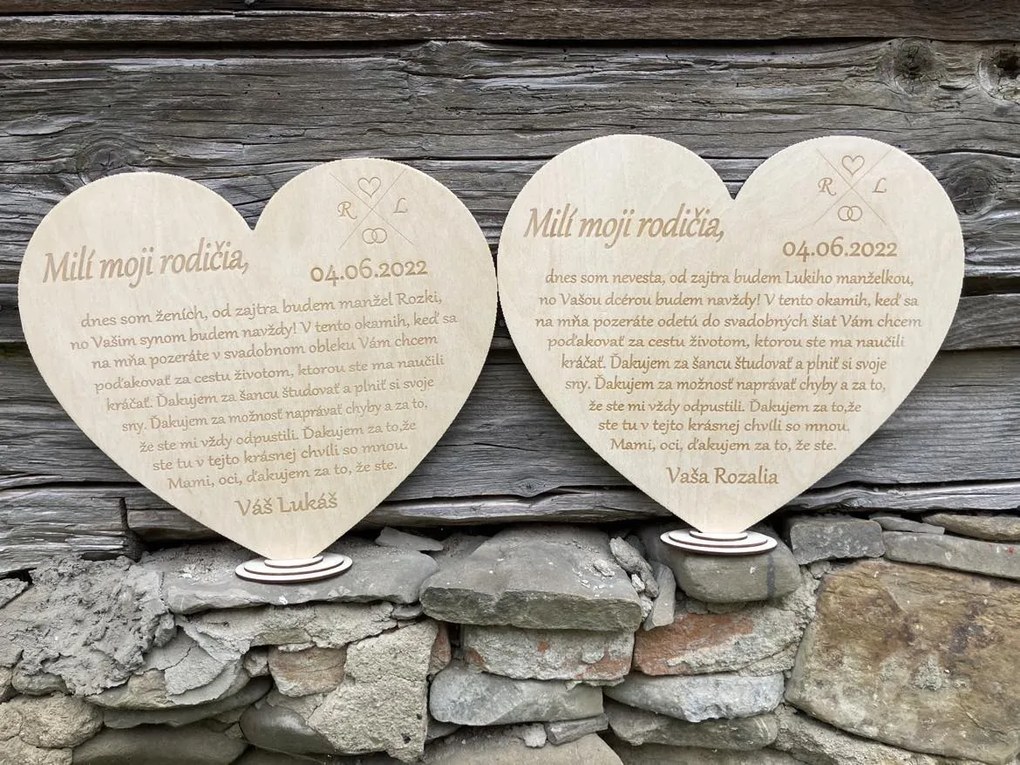 R L
Milí moji rodičia,
04.06.2022
dnes som ženích, od zajtra budem manžel Rozki,
no Vašim synom budem navždy! V tento okamih, keď sa
na mňa pozeráte v svadobnom obleku Vám chcem
poďakovať za cestu životom, ktorou ste ma naučili
kráčať. Ďakujem za šancu študovať a plniť si svoje
sny. Ďakujem za možnosť naprávať chyby a za to,
že ste mi vždy odpustili. Ďakujem za to,že
ste tu v tejto krásnej chvíli so mnou.
Mami, oci, ďakujem za to, že ste.
Váš Lukáš
R L
Milí moji rodičia,
04.06.2022
dnes som nevesta, od zajtra budem Lukiho manželkou,
no Vašou dcérou budem navždy! V tento okamih, keď sa
na mňa pozeráte odetú do svadobných šiat Vám chcem
poďakovať za cestu životom, ktorou ste ma naučili
kráčať. Ďakujem za šancu študovať a plniť si svoje
sny. Ďakujem za možnosť naprávať chyby a za to,
že ste mi vždy odpustili. Ďakujem za to,že
ste tu v tejto krásnej chvíli so mnou.
Mami, oci, ďakujem za to, že ste.
Vaša Rozalia